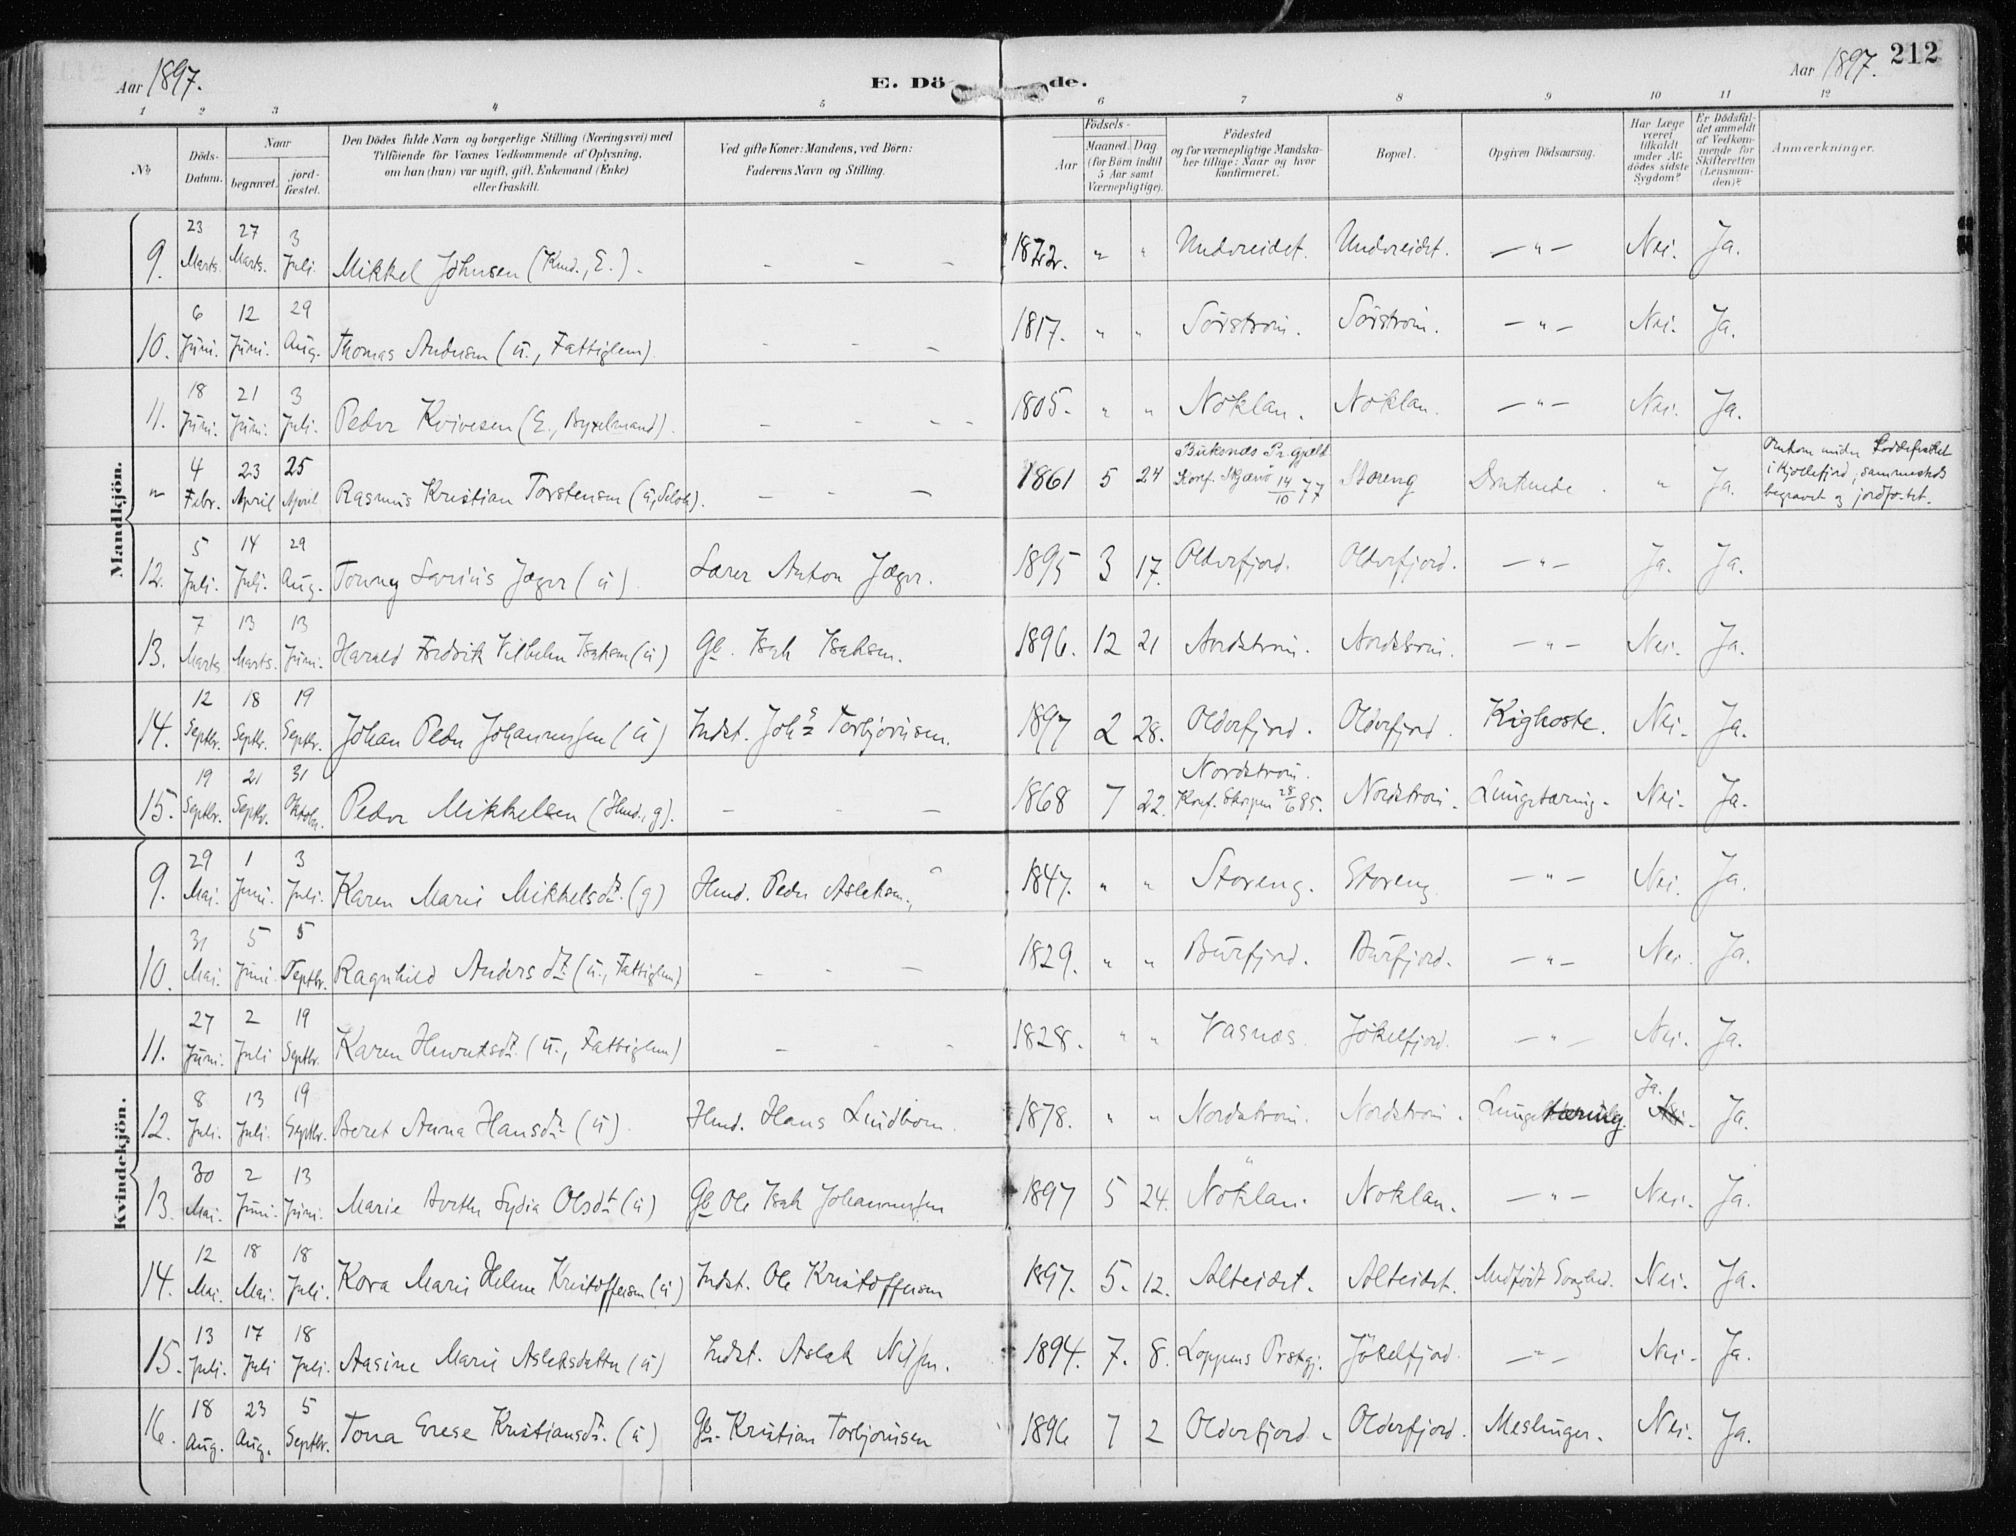 Aar 1897.
E. Dö de.
Aar 1897.
212
1 2 3 4 5 6 7 8 9 10 11 12
No
Döds-Datum.
Naar begravet. jordfæstet.
Den Dödes fulde Navn og borgerlige Stilling (Næringsvei) med Tilföiende for Voxnes Vedkommende af Oplysning, om han (hun) var ugift, gift, Enkemand (Enke) eller fraskilt.
Ved gifte Koner: Mandens, ved Börn: Faderens Navn og Stilling.
Födsels- Aar Maaned. Dag (for Börn indtil 5 Aar samt Værnepligtige).
Födested og for værnepligtige Mandskaber tillige: Naar og hvor konfirmeret.
Bopæl.
Opgiven Dödsaarsag.
Har Læge været tilkaldt under Afdödes sidste Sygdom?
Er Dödsfaldet anmeldt af Vedkommende for Skifteretten (Lensmanden)?
Anmærkninger.
Mandkjön.
9. 23 Marts. 27 Marts. 3 Juli. Mikkel Johnsen (Hmd., E.). - - - 1822. " " Undereidet. Undereidet. — " — Nei. Ja.
10. 6 Juni. 12 Juni. 29 Aug. Thomas Andersen (u., Fattiglem). - - - 1817. " " Sörstrøm. Sörstrøm. — " — Nei. Ja.
11. 18 Juni. 21 Juni. 3 Juli. Peder Kvivesen (E., Byxelmand). - - - 1805. " " Nöklan. Noklan. — " — Nei. Ja.
" 4 Febr. 23 April 25 April Rasmus Kristian Torstensen (u, Selvb). - - - 1861 5 24 Buksnæs Pr.gjæld Konf. Skjærvö 14/10 77 Storeng Druknede. " Ja. Omkom under Loddefisket i Kjöllefjord, sammesteds begravet og jordfæstet.
12. 5 Juli. 14 Juli. 29 Aug. Tonny Sarius Jæger (u) Lærer Anton Jæger. 1895 3 17. Olderfjord. Olderfjord. — " — Ja. Ja.
13. 7 Marts 13 Marts. 13 Juni. Harald Fredrik Vilhelm Isaksen (u) Gb. Isak Isaksen. 1896. 12 21 Nordstrøm. Nordstrøm. — " — Nei. Ja.
14. 12 Septbr. 18 Septbr. 19 Septbr. Johan Peder Johannessen (u) Indst. Johs Torbjörnsen. 1897 2 28. Olderfjord. Olderfjord. Kighoste. Nei. Ja.
15. 19 Septbr. 21 Septbr. 31 Oktobr. Peder Mikkelsen (Hmd., g). - - - 1868 7 22. Nordstrøm. Konf. Skorpen 28/6 85. Nordstrøm. Lungetæring. Nei. Ja.
Kvindekjön.
9. 29 Mai. 1 Juni. 3 Juli. Karen Marie Mikkelsdt. (g) Hmd. Peder Aslaksen. 1847. " " Storeng. Storeng. — " — Nei. Ja.
10. 31 Mai. 5 Juni. 5 Septbr. Ragnhild Andersdt. (u., Fattiglem) - - - 1829. " " Burfjord. Burfjord. — " — Nei. Ja.
11. 27 Juni. 2 Juli 19 Septbr. Karen Henriksdt. (u., Fattiglem) - - - 1828. " " Vasnæs. Jökelfjord. — " — Nei. Ja.
12. 8 Juli. 13 Juli. 19 Septbr. Beret Anna Hansdt (u) Hmd. Hans Lindbom. 1878. " " Nordstrøm. Nordstrøm. Lungetæring. Ja. Nei. Ja.
13. 30 Mai. 2 Juni. 13 Juni. Marie Lydia Olsdt (u) Gb Ole Isak Johannessen 1897 5 24. Nöklan. Noklan. — " — Nei. Ja.
14. 12 Mai. 18 Mai. 18 Juli. Kora Marie Helene Kristoffersen (u) Indst. Ole Kristoffersen 1897. 5. 12. Alteidet. Alteidet. Medfödt Nei. Ja.
15. 13 Juli. 17 Juli 18 Juli. Aasine Marie Aslaksdatter (u) Indst. Aslak Nilsen. 1894. 7. 8. Loppens Prstgj. Jökelfjord. — " — Nei. Ja.
16. 18 Aug. 23 Aug. 5 Septbr. Tona Erese Kristiansdt. (u) Gb. Kristian Torbjörnsen 1896 7 2 Olderfjord. Olderfjord. Meslinger. Nei. Ja.